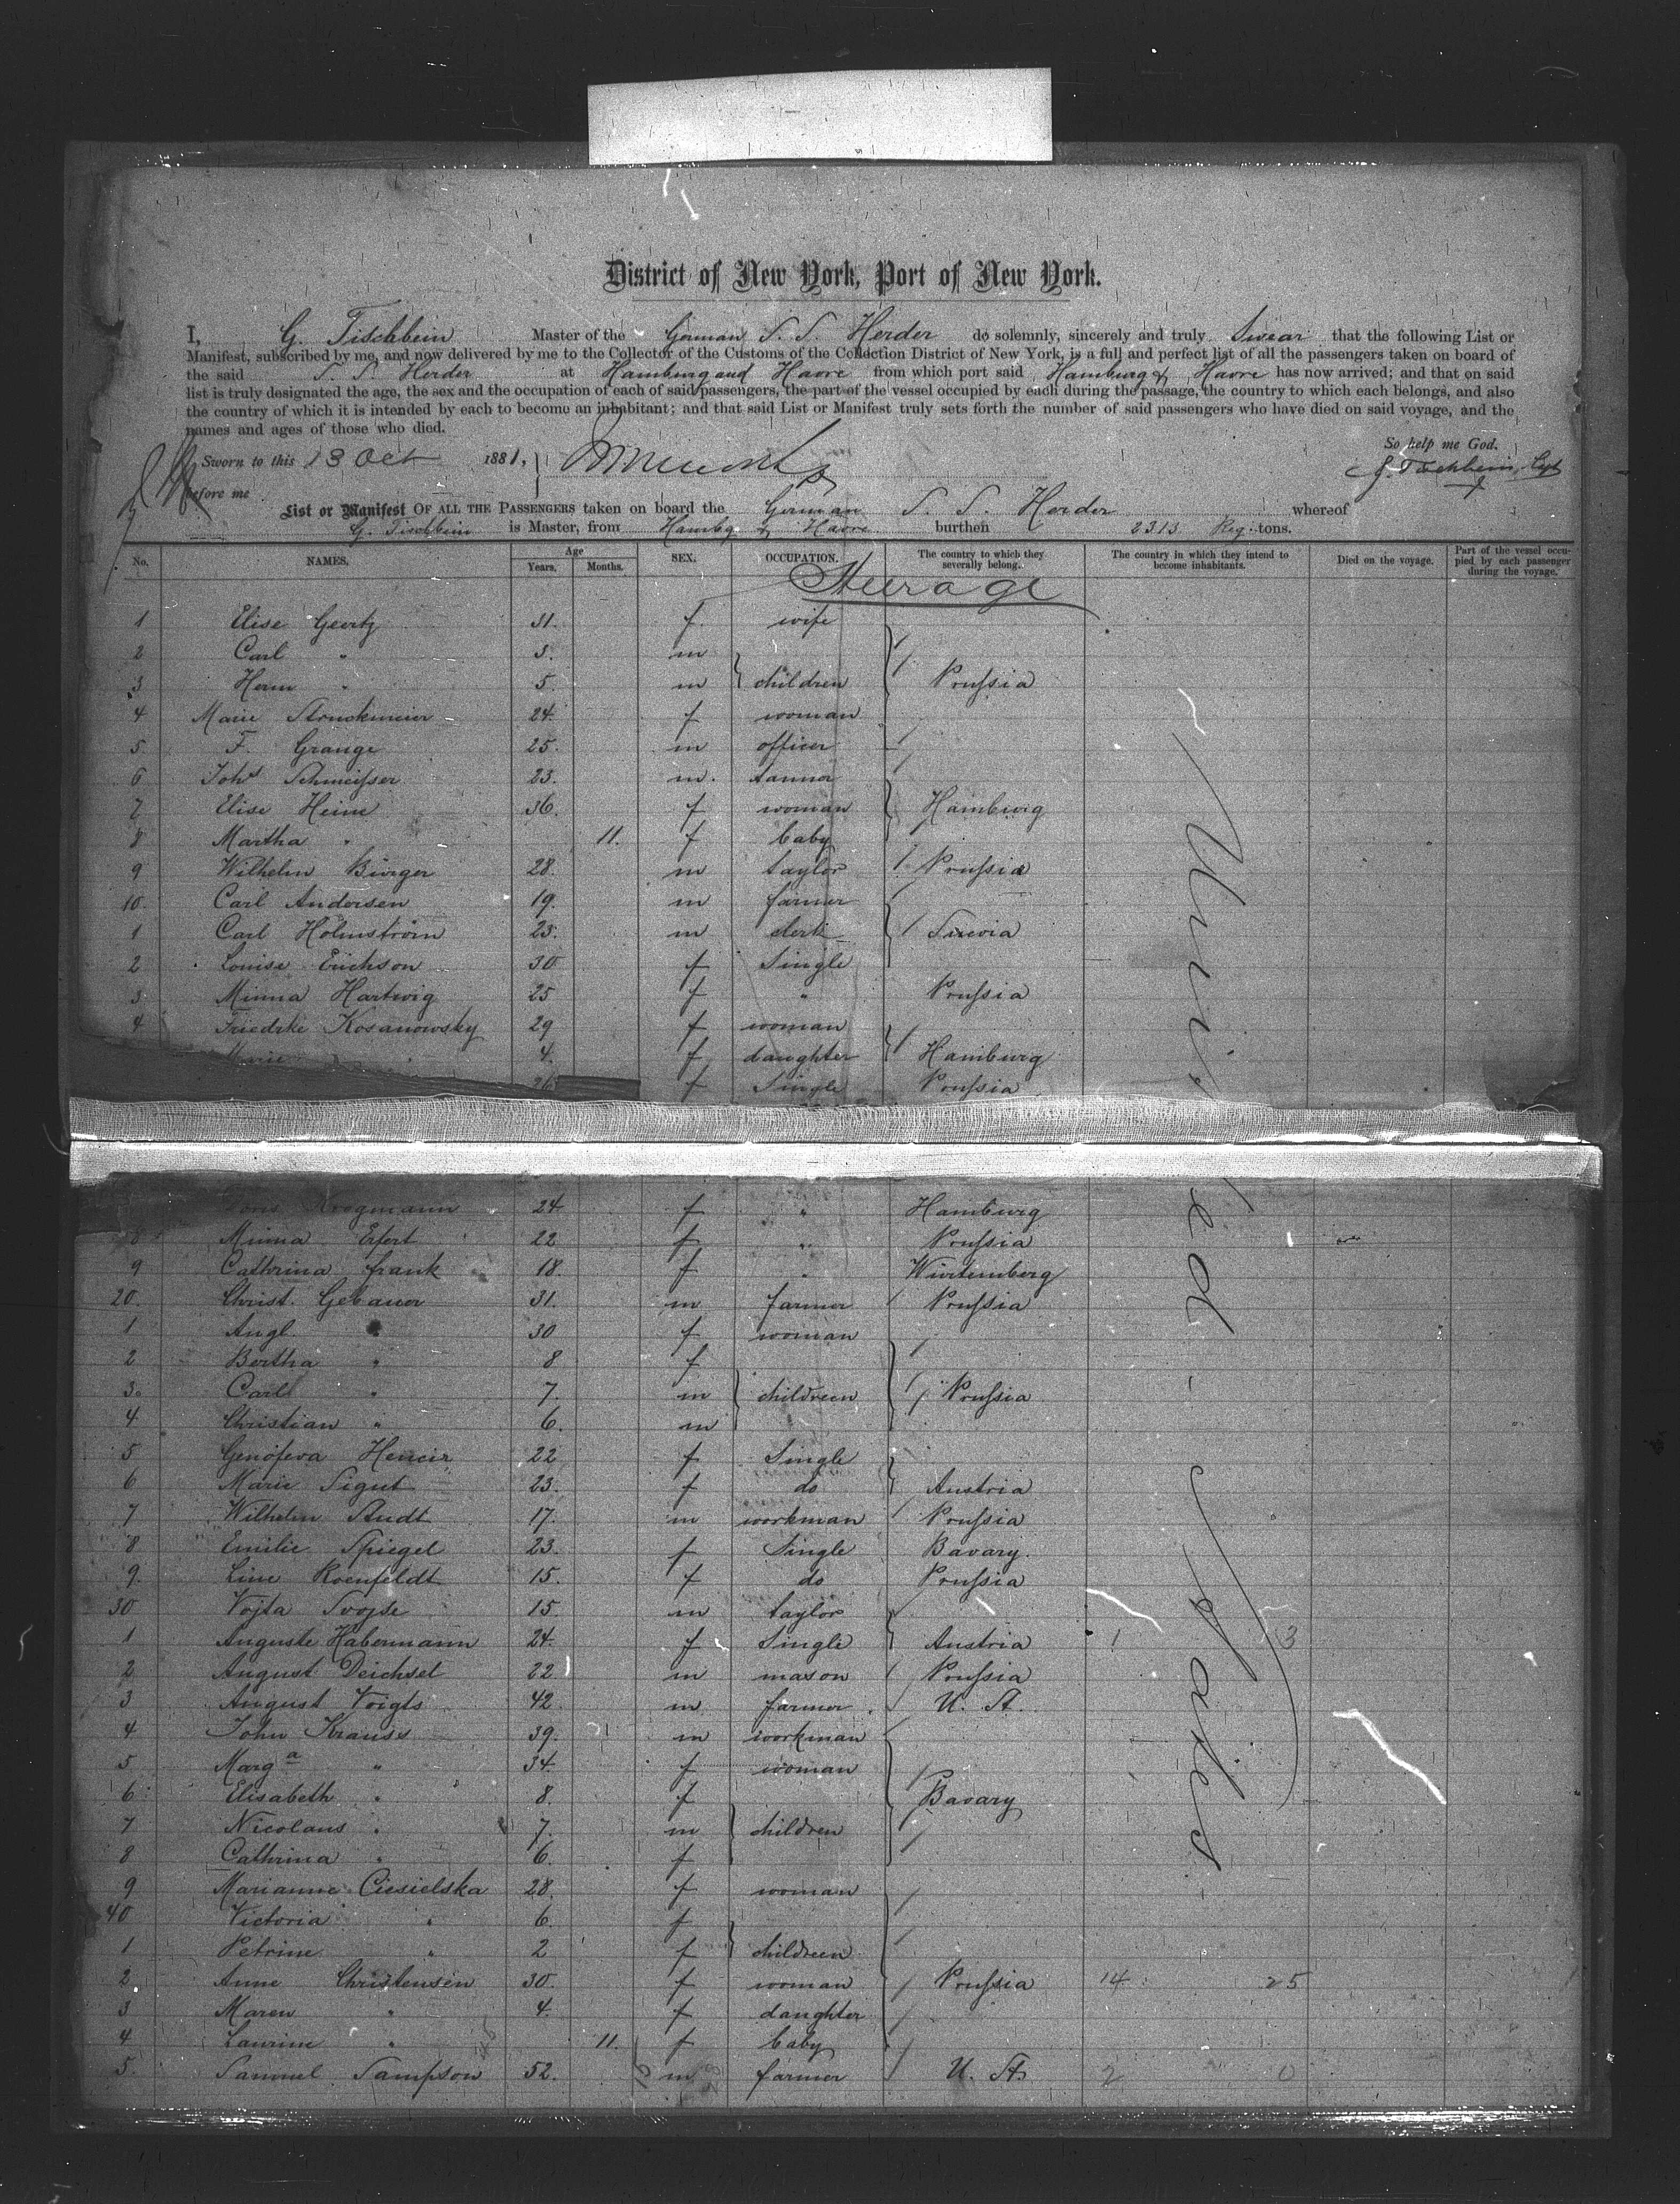 District of New York, Port of New York.
I, G. Tischbein Master of the German S. S. Herder do solemnly, sincerely and truly Swear that the following List or
Manifest, subscribed by me, and now delivered by me to the Collector of the Customs of the Collection District of New York, is a full and perfect list of all the passengers taken on board of
the said S. S. Herder at Hamburg and Havre from which port said Hamburg & Havre has now arrived; and that on said
list is truly designated the age, the sex and the occupation of each of said passengers, the part of the vessel occupied by each during the passage, the country to which each belongs, and also
the country of which it is intended by each to become an inhabitant; and that said List or Manifest truly sets forth the number of said passengers who have died on said voyage, and the
names and ages of those who died.
So help me God.
Sworn to this 13 Oct 1881,
G. Tischbein, Cpt
Before me
List or Manifest OF ALL THE PASSENGERS taken on board the German S. S. Herder whereof
G. Tischbein is Master, from Hambg & Havre burthen 2313 Reg. tons.
No. NAMES. Age Years. Months. SEX. OCCUPATION. The country to which they severally belong. The country in which they intend to become inhabitants. Died on the voyage. Part of the vessel occupied by each passenger during the voyage.
Steerage
1 Elise Geertz 31. f. wife
2 Carl " 3. m
3 Herm " 5. m children Prussia
4 Marie Struckmeier 24. f woman
5. F. Grange 25. m officer
6 Johs Schmeisser 23. m. tanner
7 Elise Heine 36. f woman Hamburg
8 Martha " 11. f baby
9 Wilhelm Bürger 28. m taylor Prussia
10. Carl Andersen 19. m farmer
1 Carl Holmström 23. m clerk Suecia
2 Louise Erickson 30 f Single
3 Minna Hartwig 25 f " Prussia
4 Friedrke Kosanowsky 29 f woman
Marie " 4. f daughter Hamburg
26 f Single Prussia
Doris Krogmann 24 f " Hamburg
8 Minna Erfert 22 f " Prussia
9 Cathrina Frank 18. f " Würtemberg
20. Christ. Gebauer 31. m farmer Prussia
1 Angl. " 30 f woman
2 Bertha " 8 f
3. Carl " 7. m children Prussia
4 Christian " 6. m
5 Genofeva Hencir 22 f Single
6 Marie Sigut 23. f do Austria
7 Wilhelm Staudt 17. m workman Prussia
8 Emilie Spiegel 23. f Single Bavary.
9. Line Roenfeldt 15. f do Prussia
30 Vojta Svojse 15. m taylor
1 Auguste Habermann 24. f Single Austria 1 3
2 August Deichsel 22 m mason Prussia
3 August Voigts 42 m farmer U. St.
4 John Krauss 39. m workman
5 Marga " 34. f woman
6 Elisabeth " 8. f Bavary
7 Nicolaus " 7. m children
8 Cathrina " 6. f
9 Marianne Ciesielska 28. f woman
40 Victoria " 6. f
1 Petrine " 2 f children
2. Anne Christensen 30. f woman Prussia 14 25
3 Maren " 4. f daughter
4 Laurine " 11. f baby
5. Samuel Sampson 52. m farmer U. St. 2 0
United States